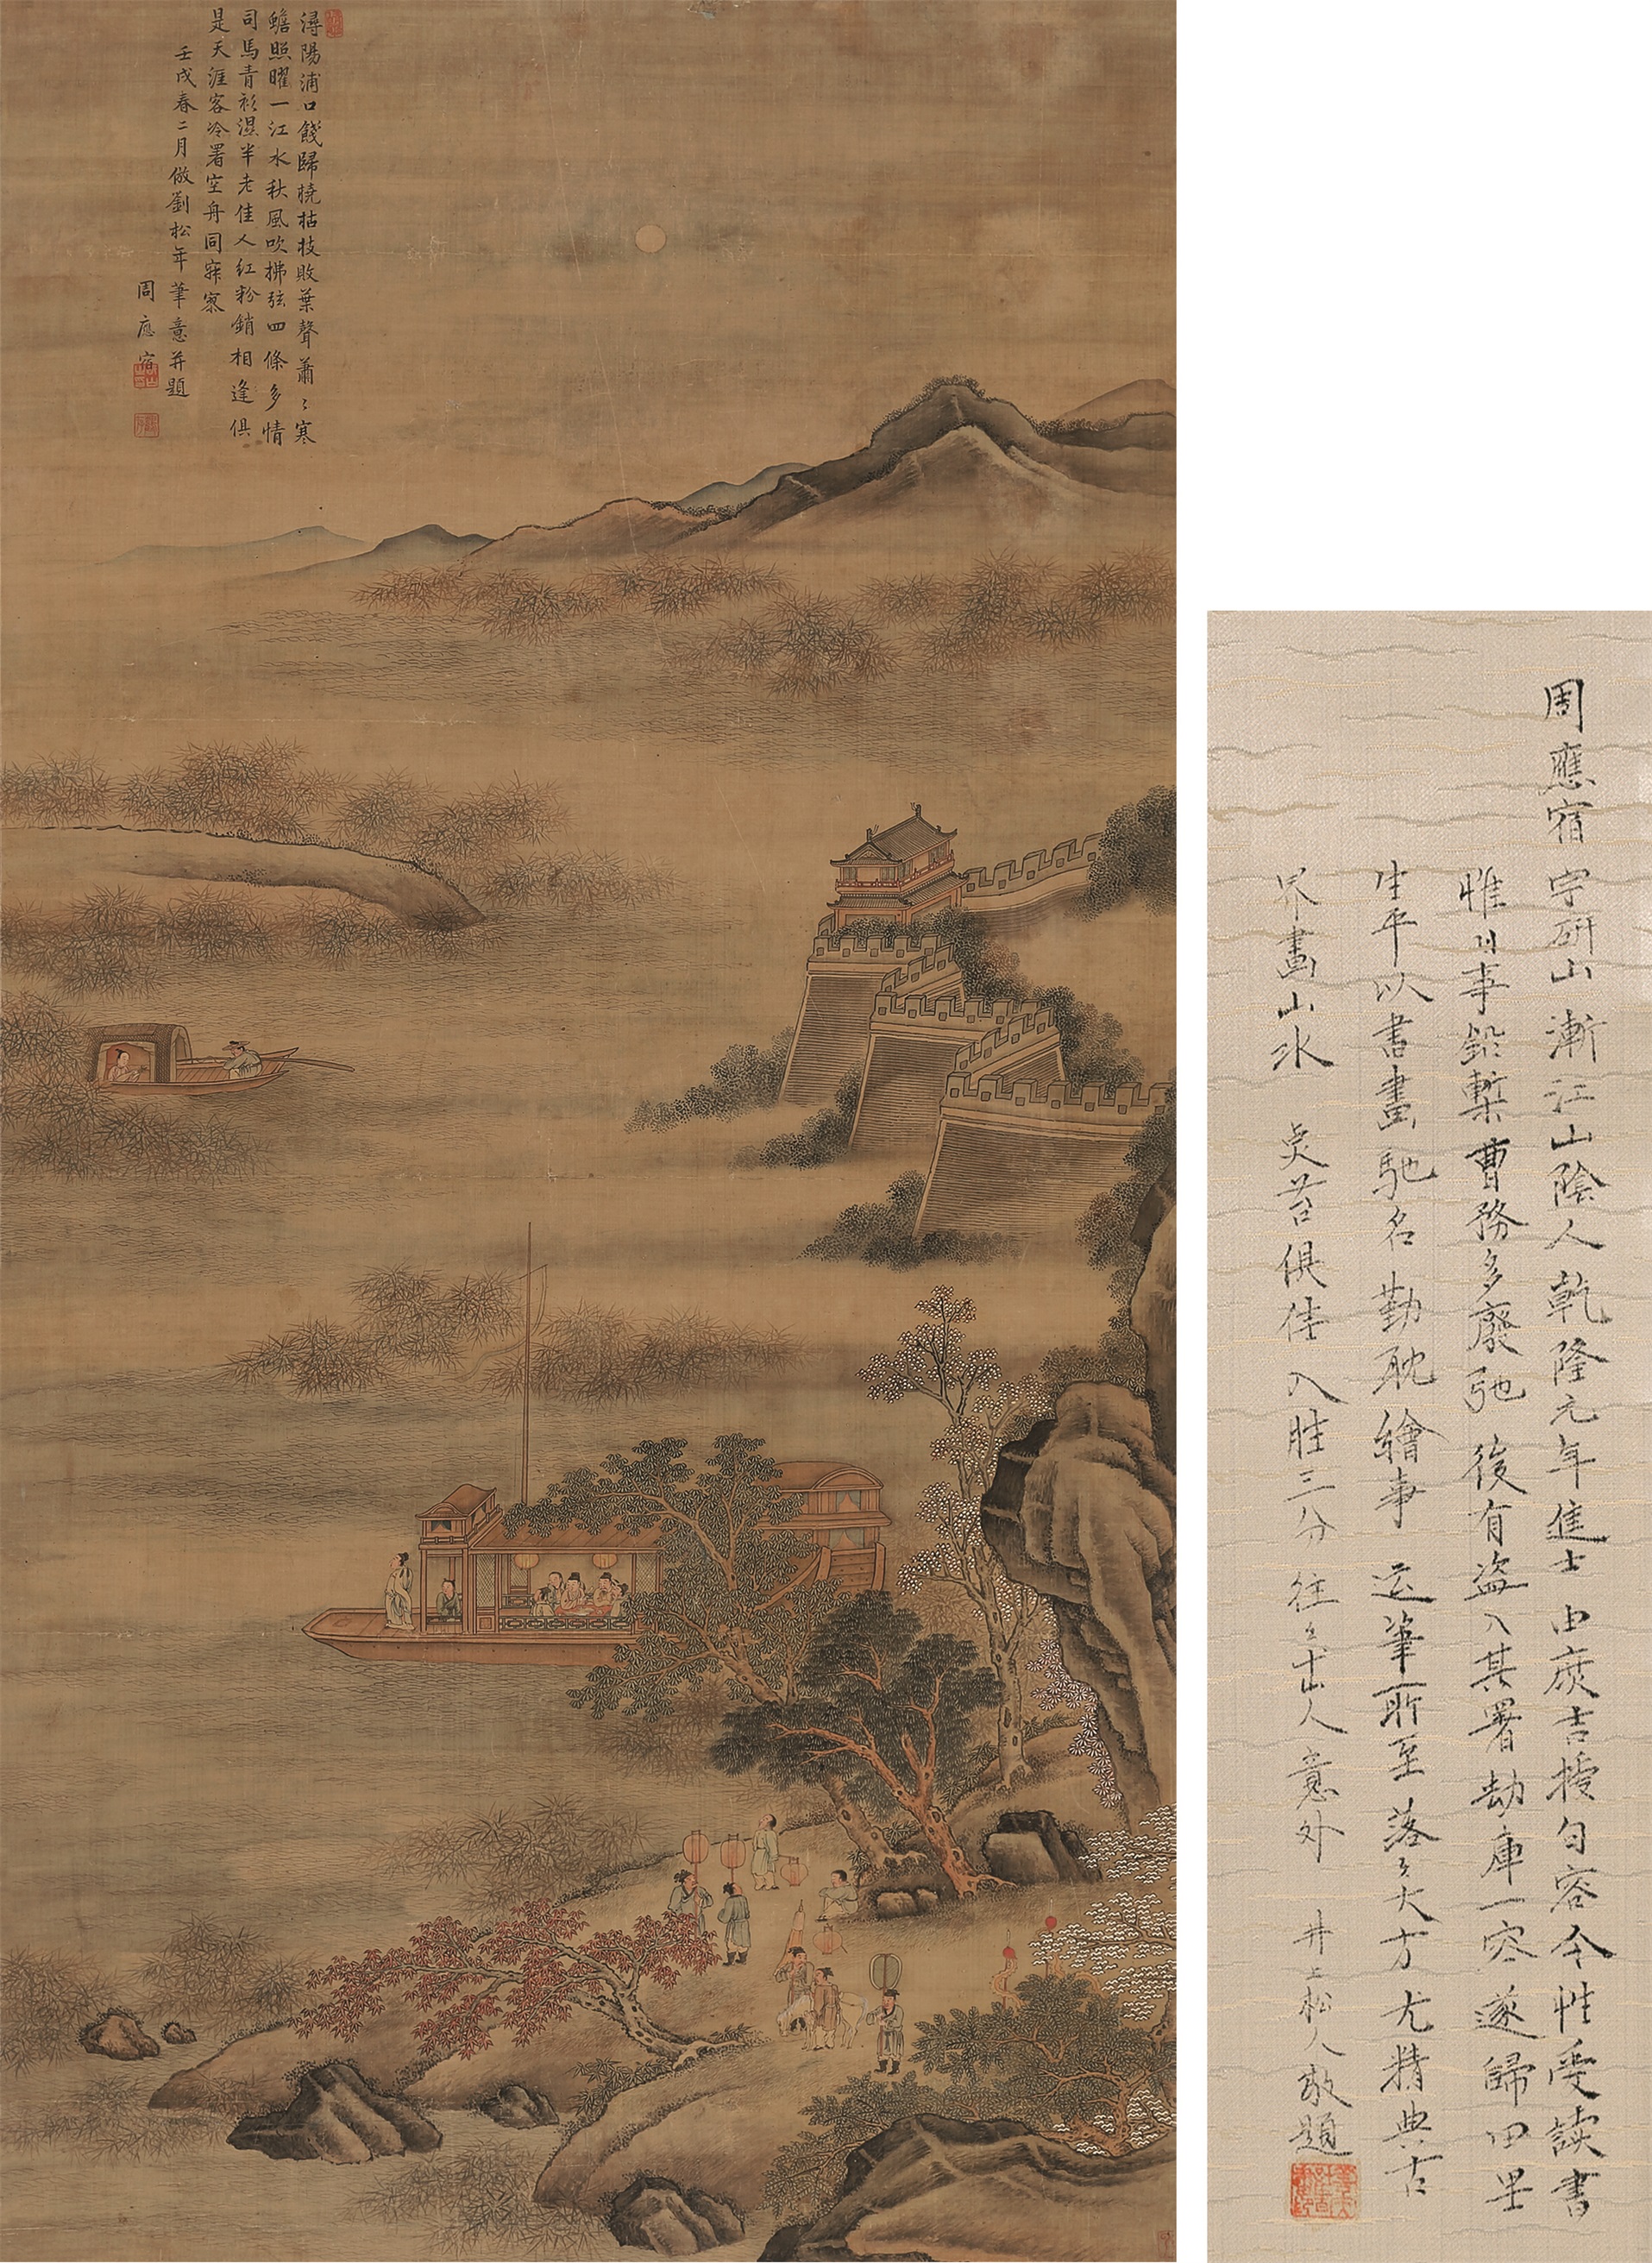 潯陽浦口餞歸橈枯枝敗葉聲蕭〻寒
蟾照曜一江水秋風吹拂弦四條多情
司馬青衫濕半老佳人紅粉銷相逢俱
是天涯客冷署空舟同寂寥
壬戌春二月倣劉松年筆意并題
周應宿
周應宿字研山漸江山陰人乾隆元年進士由庶吉授句容令性受读書
惟日事鉛槧曹務多廢弛後有盗入其署劫庫一空遂歸田里
生平以書畫馳名勤耽繪事运筆所至落〻大方尤精典古
界畫山水点苔俱佳入勝三分往〻出人意外井上松人敬題